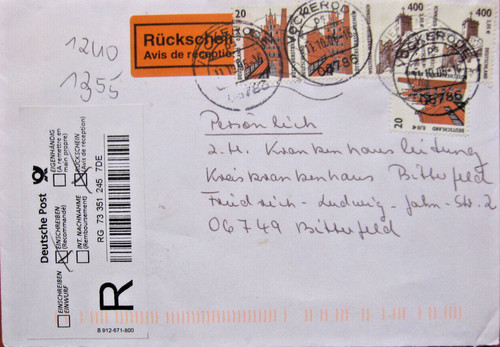 1240
1355
Rückschein
Avis de réception
20
400
400
VOCKERODE
06786
VOCKERODE
06786
20
DEUTSCHLAND
Persönlich
z.H. Krankenhausleitung
Kreiskrankenhaus Bitterfeld
Friedrich-Ludwig-Jahn-Str. 2
06749 Bitterfeld
Deutsche Post
EINSCHREIBEN EINWURF
EINSCHREIBEN (Recommandé)
INT. NACHNAHME (Remboursement)
EIGENHÄNDIG (A remettre en main propre)
RÜCKSCHEIN (Avis de réception)
RG 73 351 245 7DE
R
B 912-671-800